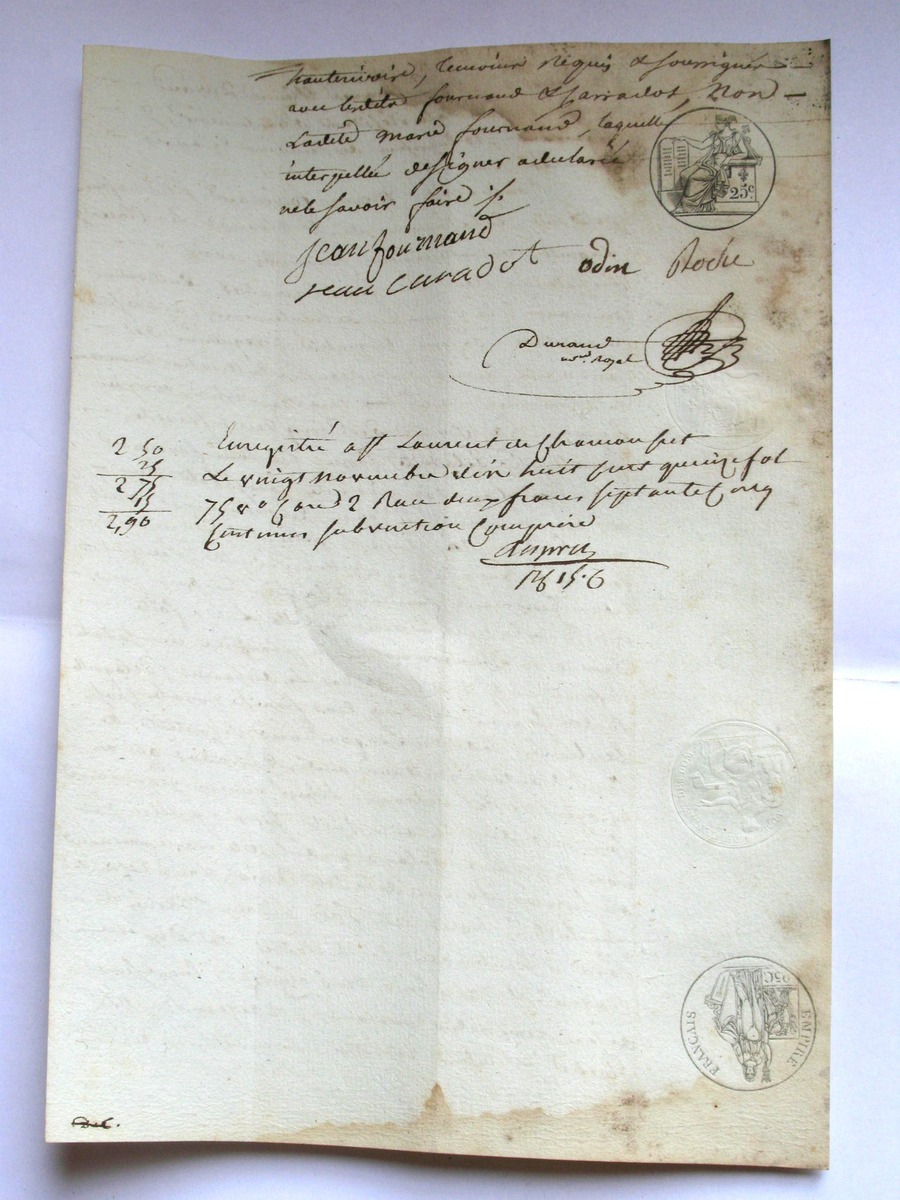 hauterivoire, temoins requis & soussignés
avec lesdits fournand & Carradot, Non
Ladite Marie fournand, laquelle
interpellée de signer a declaré
ne le savoir faire /.
jean fournand
jean Caradot odin Roche
Durand
not. Royal
25c
2 50
25
2 75
15
2,90
Enregistré a St Laurent de Chamousset
Le vingt novembre dix huit cent quinze fol
75 vo Case 2 Recu deux francs septante Cinq
Centimes subvention Comprise
EMPIRE FRANÇAIS